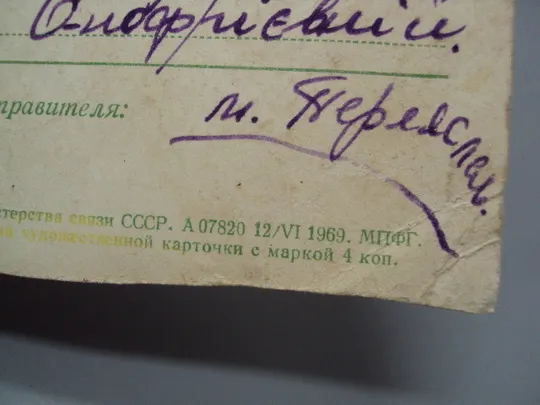 Онофрієвій.
правителя:
м. Переяслав.
стерства связи СССР. А 07820 12/VI 1969. МПФГ.
ий художественной карточки с маркой 4 коп.